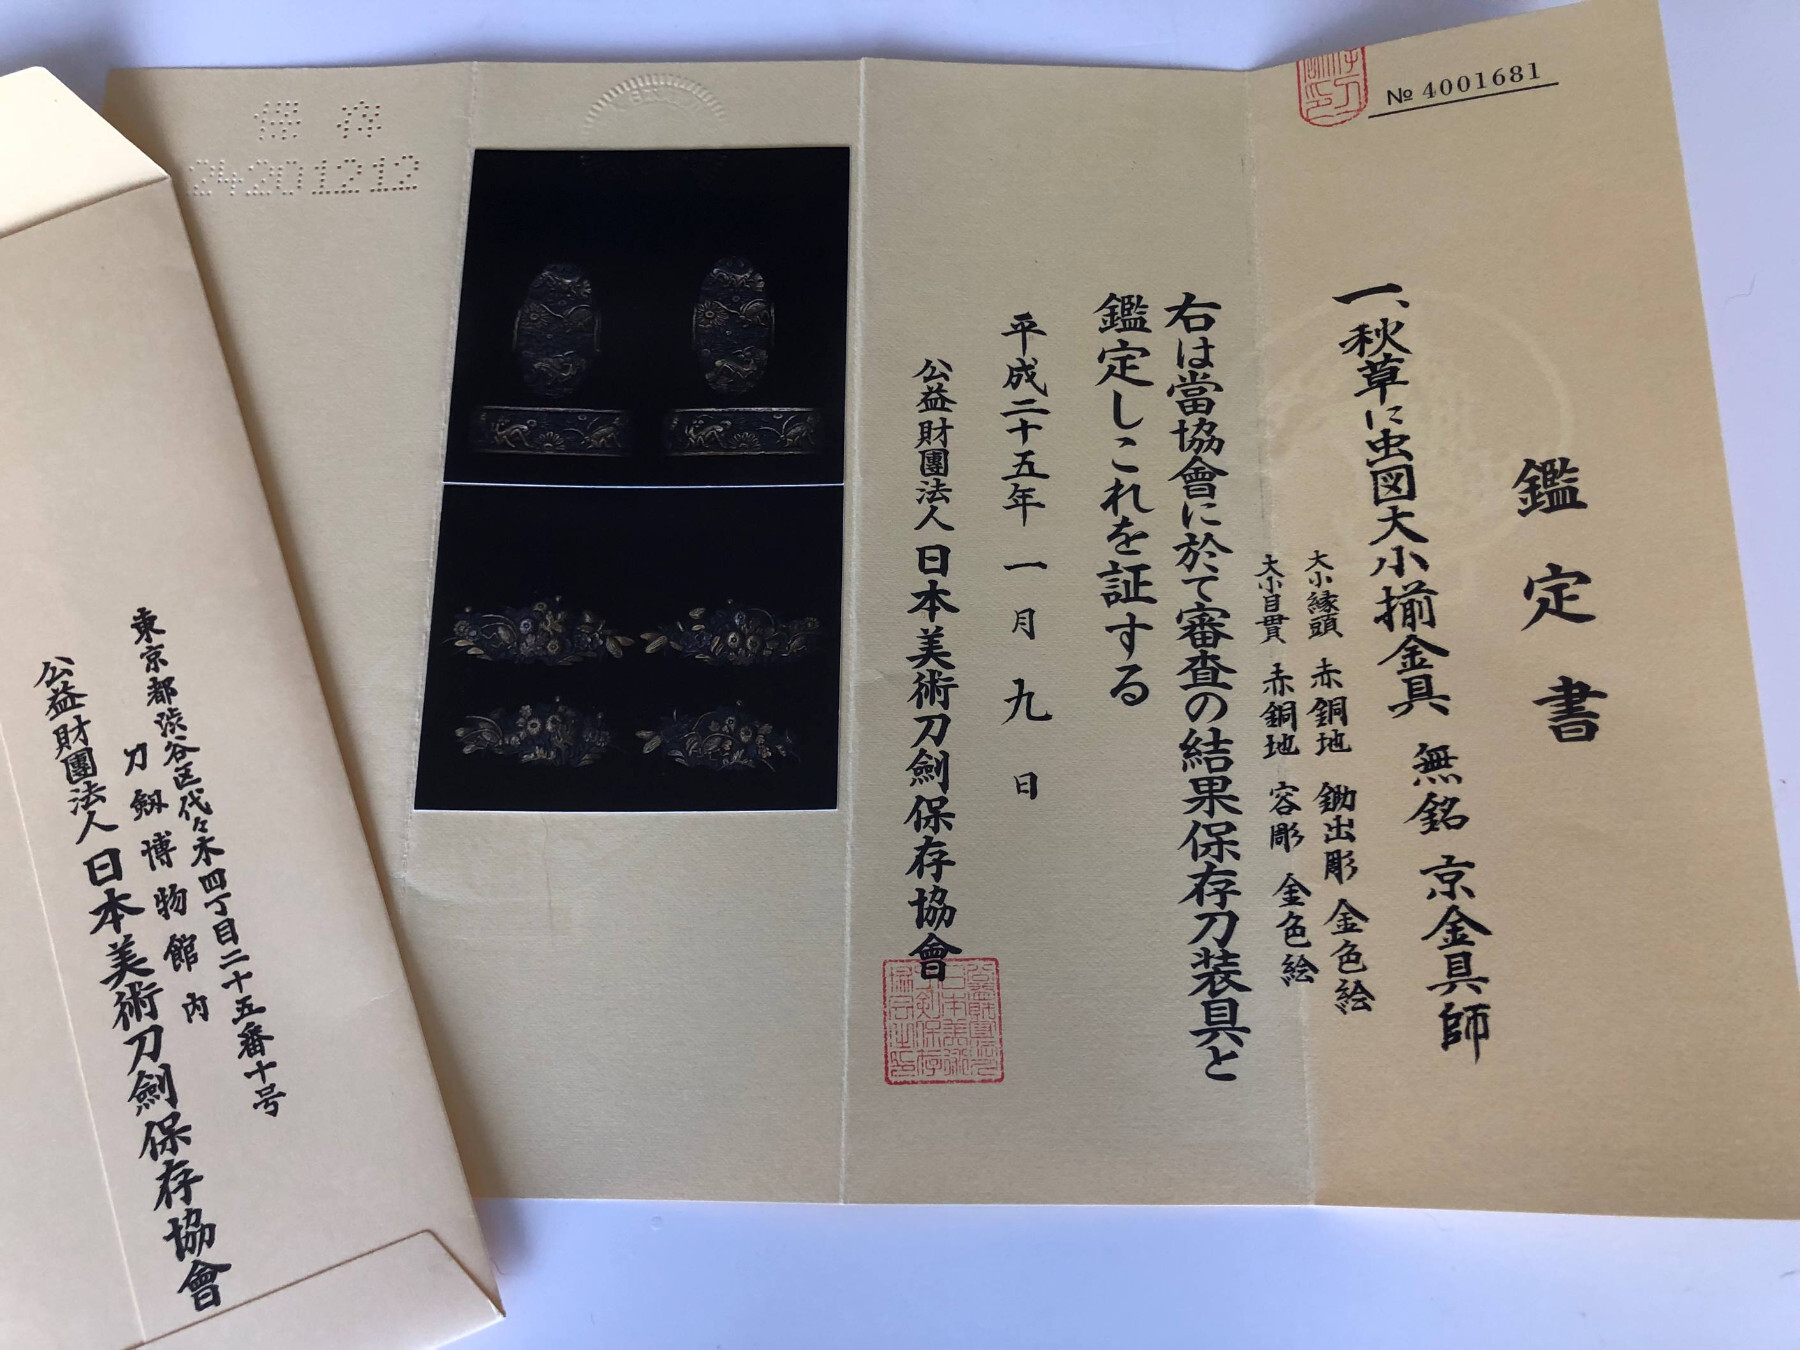 № 4001681
鑑定書
一、秋草に虫図大小揃金具 無銘 京金具師
大小縁頭 赤銅地 鋤出彫 金色絵
大小目貫 赤銅地 容彫 金色絵
右は當協會に於て審査の結果保存刀装具と
鑑定しこれを証する
平成二十五年一月九日
公益財團法人 日本美術刀劍保存協會
保存
24201212
東京都渋谷区代々木四丁目二十五番十号
刀劔博物館内
公益財團法人 日本美術刀劍保存協會